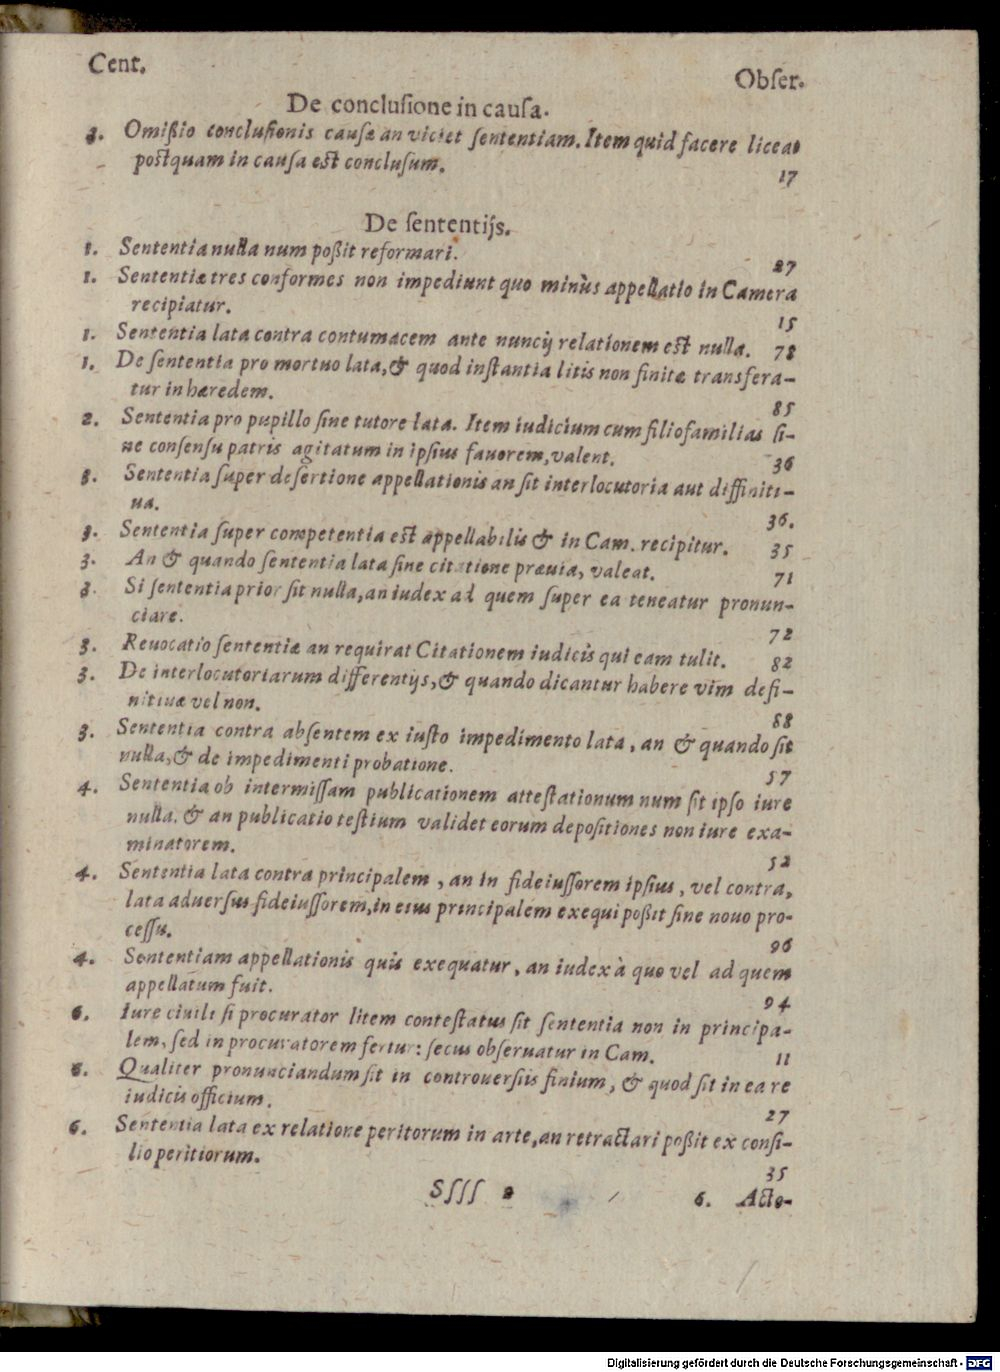 Cent.
Obſer.
De concluſione in cauſa.
3. Omißio concluſionis cauſæ an viciet ſententiam. Item quid facere liceat
poſtquam in cauſa eſt concluſum.
17
De ſententijs.
1. Sententia nulla num poßit reformari.
27
1. Sententiæ tres conformes non impediunt quo minùs appellatio in Camera
recipiatur.
15
1. Sententia lata contra contumacem ante nuncij relationem eſt nulla. 78
1. De ſententia pro mortuo lata, & quod inſtantia litis non finitæ transfera-
tur in hæredem.
85
2. Sententia pro pupillo ſine tutore lata. Item iudicium cum filiofamilias ſi-
ne conſenſu patris agitatum in ipſius fauorem, valent.
36
3. Sententia ſuper deſertione appellationis an ſit interlocutoria aut diffiniti-
ua.
36.
3. Sententia ſuper competentia eſt appellabilis & in Cam. recipitur. 35
3. An & quando ſententia lata ſine citatione præuia, valeat.
71
3. Si ſententia prior ſit nulla, an iudex ad quem ſuper ea teneatur pronun-
ciare.
72
3. Reuocatio ſententiæ an requirat Citationem iudicis qui eam tulit. 82
3. De interlocutoriarum differentijs, & quando dicantur habere vim defi-
nitiuæ vel non.
88
3. Sententia contra abſentem ex iuſto impedimento lata, an & quando ſit
nulla, & de impedimenti probatione.
57
4. Sententia ob intermiſſam publicationem atteſtationum num ſit ipſo iure
nulla. & an publicatio teſtium validet eorum depoſitiones non iure exa-
minatorem.
52
4. Sententia lata contra principalem, an in fideiuſſorem ipſius, vel contra,
lata aduerſus fideiuſſorem, in eius principalem exequi poßit ſine nouo pro-
ceſſu.
96
4. Sententiam appellationis quis exequatur, an iudex à quo vel ad quem
appellatum fuit.
94
6. Iure ciuili ſi procurator litem conteſtatus ſit ſententia non in principa-
lem, ſed in procuratorem fertur: ſecus obſeruatur in Cam.
11
Qualiter pronunciandum ſit in controuerſiis finium, & quod ſit in ea re
iudicis officium.
27
6. Sententia lata ex relatione peritorum in arte, an retractari poßit ex conſi-
lio peritiorum.
35
Sſſſ 2
6. Acto-
Digitalisierung gefördert durch die Deutsche Forschungsgemeinschaft - DFG